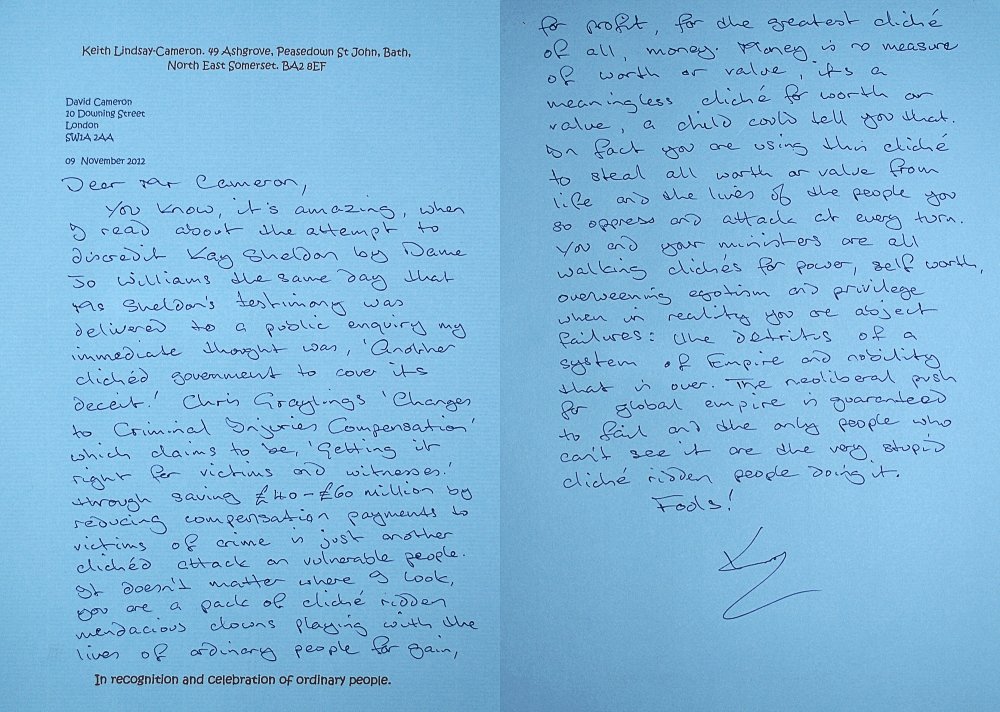 Keith Lindsay-Cameron. 49 Ashgrove, Peasedown St John, Bath,
North East Somerset. BA2 8EF
David Cameron
10 Downing Street
London
SW1A 2AA
09 November 2012
Dear Mr Cameron,
You know, it's amazing, when
I read about the attempt to
discredit Kay Sheldon by Dame
Jo Williams the same day that
Ms Sheldon's testimony was
delivered to a public enquiry my
immediate thought was, 'Another
clichéd government to cover its
deceit.' Chris Graylings 'Changes
to Criminal Injuries Compensation'
which claims to be, 'Getting it
right for victims and witnesses.'
through saving £40-£60 million by
reducing compensation payments to
victims of crime is just another
clichéd attack on vulnerable people.
It doesn't matter where I look,
you are a pack of cliché ridden
mendacious clowns playing with the
lives of ordinary people for gain,
In recognition and celebration of ordinary people.
for profit, for the greatest cliché
of all, money. Money is no measure
of worth or value, it's a
meaningless cliché for worth or
value, a child could tell you that.
In fact you are using this cliché
to steal all worth or value from
life and the lives of the people you
so oppress and attack at every turn.
You and your ministers are all
walking clichés for power, self worth,
overweening egotism and privilege
when in reality you are abject
failures: the detritus of a
system of Empire and nobility
that is over. The neoliberal push
for global empire is guaranteed
to fail and the only people who
can't see it are the very stupid
cliché ridden people doing it.
Fools!